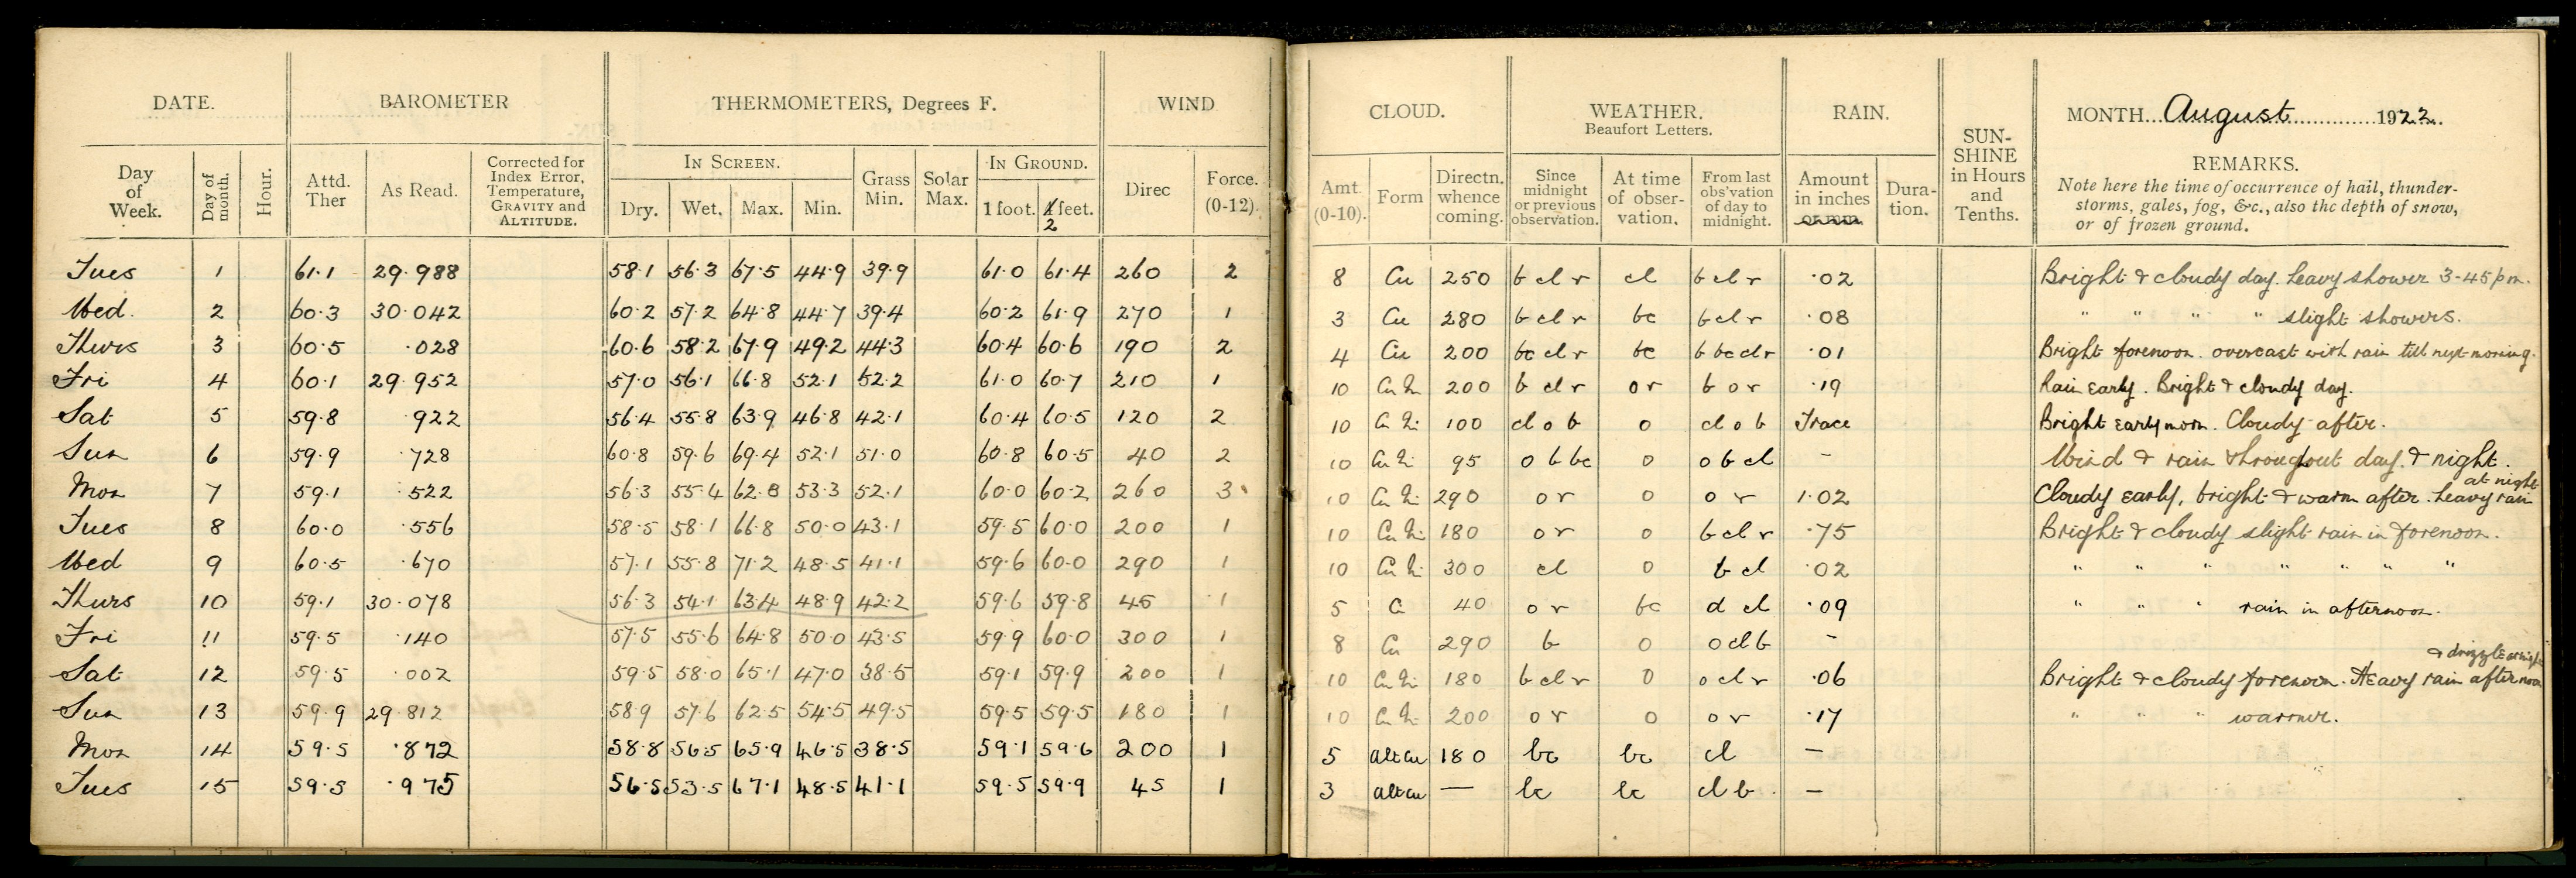 DATE. BAROMETER THERMOMETERS, Degrees F. WIND
Day of Week. Day of month. Hour. Attd. Ther As Read. Corrected for Index Error, Temperature, GRAVITY and ALTITUDE. IN SCREEN. Dry. Wet. Max. Min. Grass Min. Solar Max. IN GROUND. 1 foot. 2 feet. Direc Force. (0-12).
Tues 1 61.1 29.988 58.1 56.3 67.5 44.9 39.9 61.0 61.4 260 2
Wed. 2 60.3 30.042 60.2 57.2 64.8 44.7 39.4 60.2 61.9 270 1
Thurs 3 60.5 .028 60.6 58.2 67.9 49.2 44.3 60.4 60.6 190 2
Fri 4 60.1 29.952 57.0 56.1 66.8 52.1 52.2 61.0 60.7 210 1
Sat 5 59.8 .922 56.4 55.8 63.9 46.8 42.1 60.4 60.5 120 2
Sun 6 59.9 .728 60.8 59.6 69.4 52.1 51.0 60.8 60.5 40 2
Mon 7 59.1 .522 56.3 55.4 62.8 53.3 52.1 60.0 60.2 260 3
Tues 8 60.0 .556 58.5 58.1 66.8 50.0 43.1 59.5 60.0 200 1
Wed 9 60.5 .670 57.1 55.8 71.2 48.5 41.1 59.6 60.0 290 1
Thurs 10 59.1 30.078 56.3 54.1 63.4 48.9 42.2 59.6 59.8 45 1
Fri 11 59.5 .140 57.5 55.6 64.8 50.0 43.5 59.9 60.0 300 1
Sat 12 59.5 .002 59.5 58.0 65.1 47.0 38.5 59.1 59.9 200 1
Sun 13 59.9 29.812 58.9 57.6 62.5 54.5 49.5 59.5 59.5 180 1
Mon 14 59.5 .872 58.8 56.5 65.9 46.5 38.5 59.1 59.6 200 1
Tues 15 59.5 .975 56.5 53.5 67.1 48.5 41.1 59.5 59.9 45 1
CLOUD. WEATHER. Beaufort Letters. RAIN. SUN-SHINE in Hours and Tenths. MONTH August 1922.
Amt. (0-10). Form Directn. whence coming. Since midnight or previous observation. At time of obser-vation. From last obs'vation of day to midnight. Amount in inches or mm Dura-tion. REMARKS.
Note here the time of occurrence of hail, thunder-
storms, gales, fog, &c., also the depth of snow,
or of frozen ground.
8 Cu 250 b cl r cl b cl r .02 Bright & cloudy day. heavy shower 3-45 pm.
3 Cu 280 b cl r bc b cl r .08 " " " " slight showers.
4 Cu 200 bc cl r bc b bc cl r .01 Bright forenoon. overcast with rain till next morning.
10 Cu Ni 200 b cl r o r b o r .19 Rain early. Bright & cloudy day.
10 Cu Ni 100 cl o b o cl o b Trace Bright early morn. Cloudy after.
10 Cu Ni 95 o b bc o o b cl - Wind & rain throughout day & night.
10 Cu Ni 290 o r o o r 1.02 Cloudy early, bright & warm after. heavy rain at night
10 Cu Ni 180 o r o b cl r .75 Bright & cloudy slight rain in forenoon.
10 Cu Ni 300 cl o b cl .02 " " " " " " "
5 Ci 40 o r bc d cl .09 " " " rain in afternoon.
8 Cu 290 b o o cl b -
10 Cu Ni 180 b cl r o o cl r .06 Bright & cloudy forenoon. Heavy rain afternoon & drizzle at night
10 Cu Ni 200 o r o o r .17 " " " warmer.
5 alt cu 180 bc bc cl —
3 alt cu — bc bc cl b —